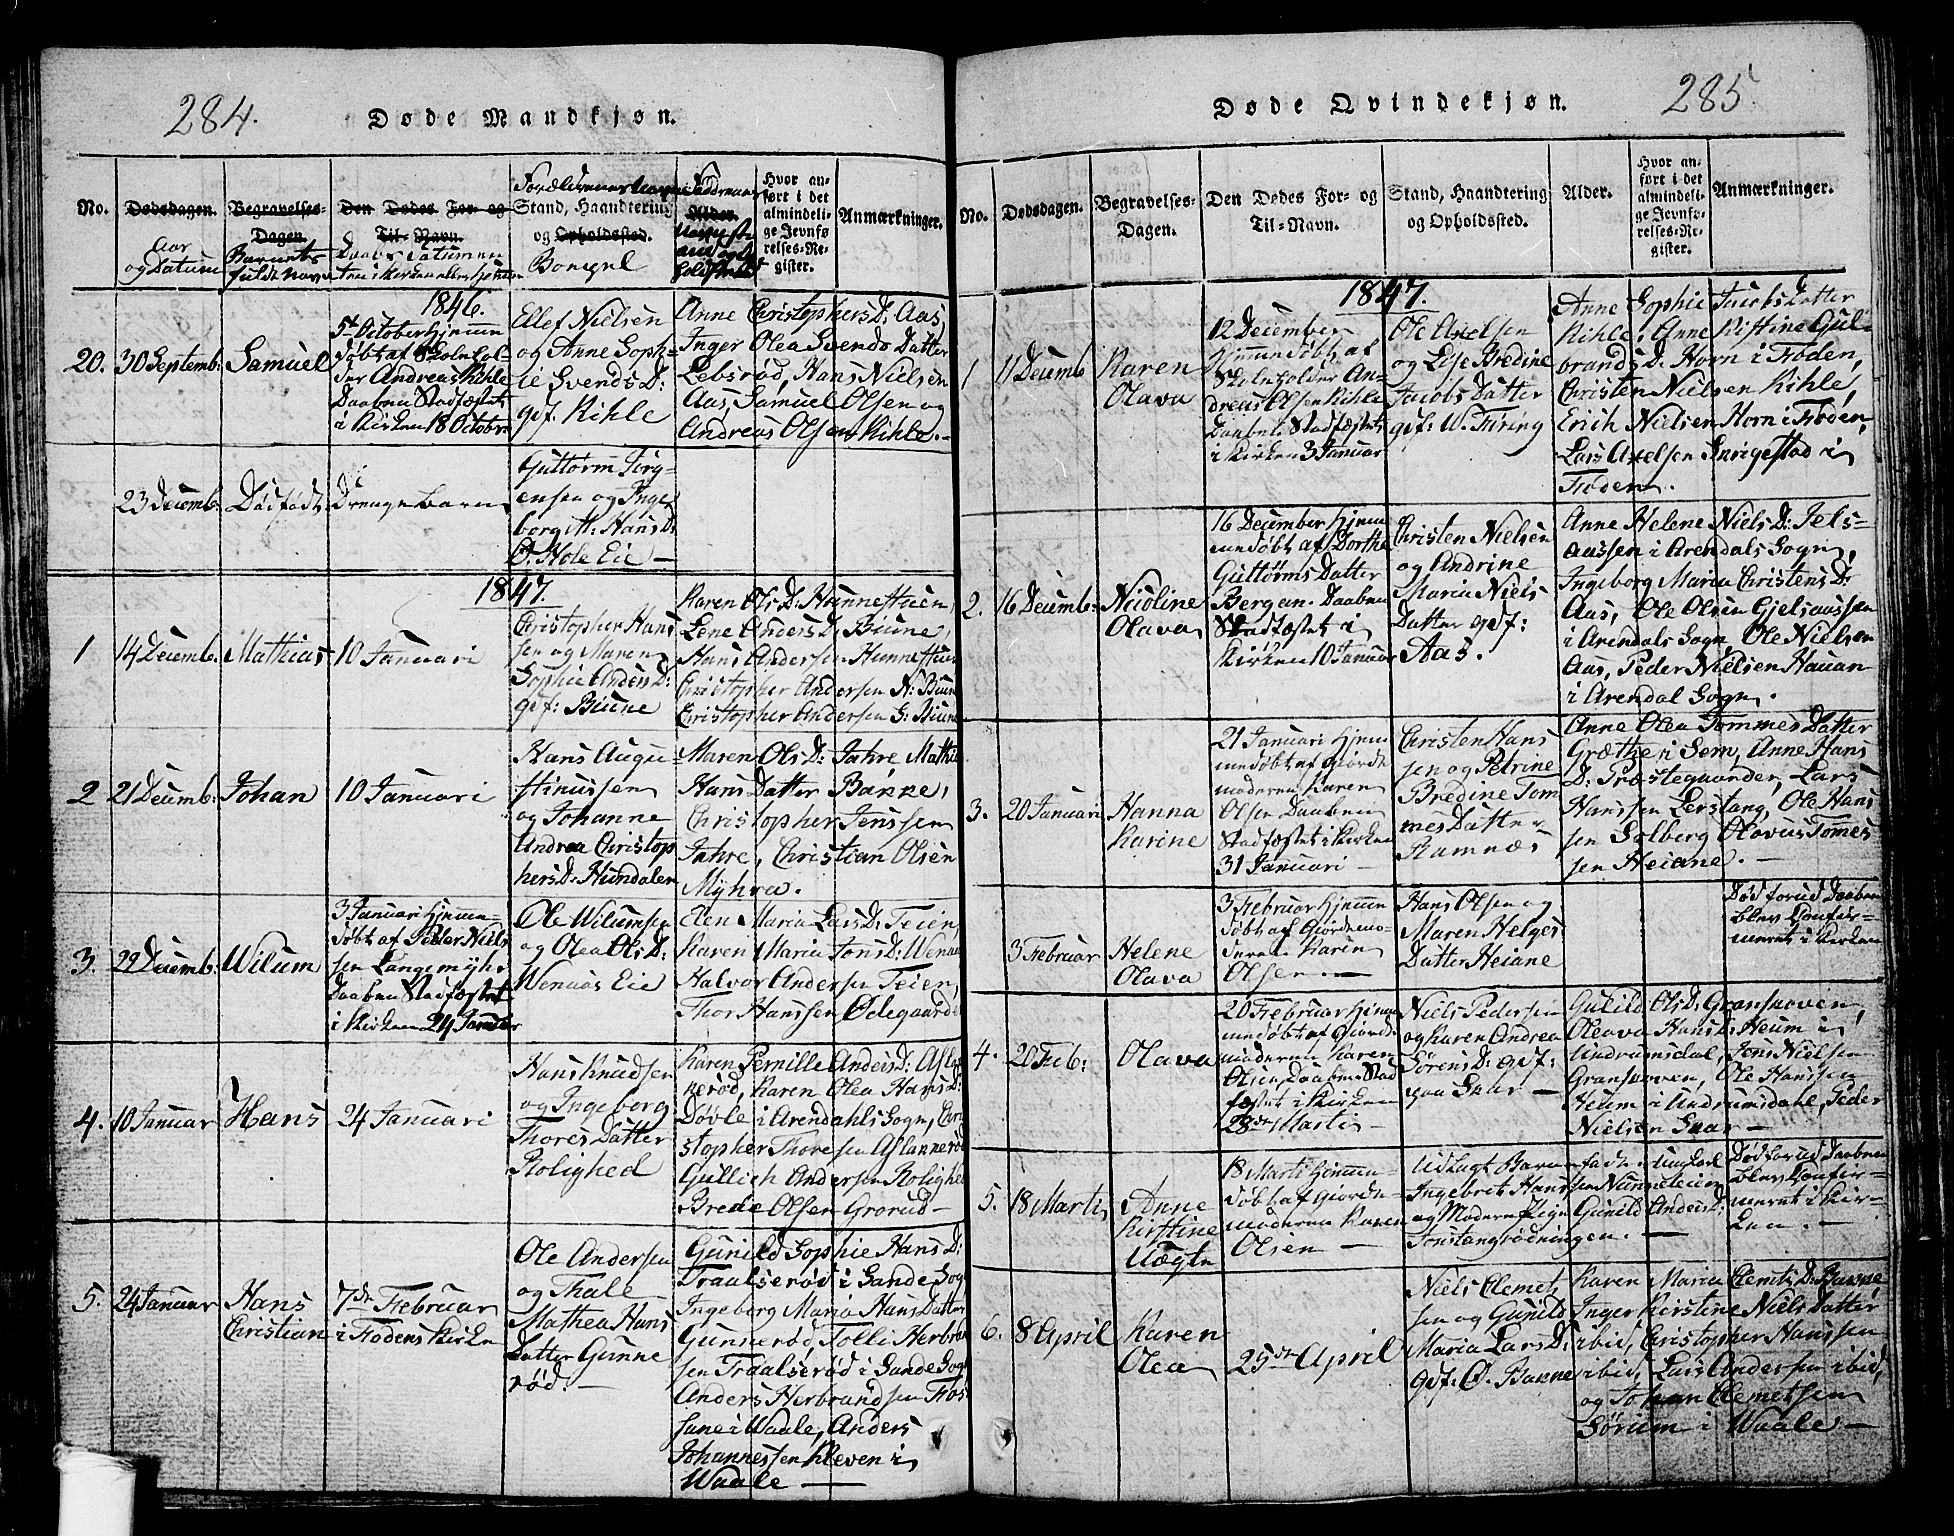 284.
Døde Mandkjøn.
No.
Dødsdagen.
Aar
og Datum
Begravelses-
Dagen.
Barnets
fulde Navn
Den Dødes For- og
Til-Navn.
Daabs Datum en
ten i Kirken eller Hjemme
Forældrenes Navne
Stand, Haandtering
og Opholdsted.
Bopæl
Faddernes
Alder.
Navn, St
and og Op
holdsted
Hvor an-
ført i det
almindeli-
ge Jevnfø
relses-Re-
gister.
Anmærkninger.
1846.
20.
30 Septemb:
Samuel
5t October hjemme
døbt af Skolehol-
der Andreas Kihle
Daaben Stadfæstet
i Kirken 18 Octobr
Ellef Nielsen
og Anne Soph-
ie Svends D:
gdf: Kihle
Anne Christophers D: Aas,
Inger Olea Svends Datter
Lebsrød, Hans Nielsen
Aas, Samuel Olsen og
Andreas Olsen Kihle.-
23 Decemb:
Dødfødt
Drengebarn
Guttorm Jørg-
ensen og Inge
borg M: Hans D:
Ø. Hole Eie -
1847.
1
14 Decemb.
Mathias
10 Januari
Christopher Hans
sen og Maren
Sophie Anders D:
gdf: Biune
Karen Ols D: Hunnestuen,
Lene Anders D: Biune,
Hans Andersen Hunnestuen
Christopher Andersen N: Biune
Christopher Andersen S: Biune
2
21 Decemb:
Johan
10 Januari
Hans Augu
stinussen
og Johanne
Andrea Christop
hers D: Hundalen
Maren Ols D: Jahre Mathie
Hans Datter Bakke,
Christopher Jenssen
Jahre, Christian Olsen
Myhra.
3.
29 Decemb:
Wilum
3 Januari hjemme-
døbt af Peder Niel
sen Langemyhr
Daaben Stadfæstet
i Kirken 24 Januar
Ole Wilumsen
og Olea Ols D:
Wenaas Eie
Elen Maria Lars D: Teien
Karen Maria Jons D: Wenaas
Halvor Andersen Teien,
Thor Hanssen Ødegaarde
4.
10 Januar
Hans
24 Januari
Hans Knudsen
og Ingeborg
Thores Datter
Rolighed
Karen Pernille Anders D: Aslan
nerød, Karen Olea Hans D:
Døvle i Arendahls Sogn, Chri
stopher Thoresen Aslannerød
Gullich Andersen Rolighed
Brede Olsen Grorud-
5.
24 Januar
Hans
Christian
7de Februar
i Frodens Kirke
Ole Andersen
og Thale
Mathea Hans
Datter Gunne
rød. -
Gunild Sophie Hans D:
Traalserød i Sande Sogn
Ingeborg Maria Hans Datter
Gunnerød, Tolli Herbran
sen Traalserød i Sande Sogn
Anders Herbrandsen Fos
sane i Waale, Anders
Johannessen Kleven i
Waale -
285.
Døde Qvindekjøn.
No.
Dødsdagen.
Begravelses-
Dagen.
Den Dødes For- og
Til-Navn.
Stand, Haandtering
og Opholdssted.
Alder.
Hvor an-
ført i det
almindeli-
ge Jevnfø-
relses-Re-
gister.
Anmærkninger.
1847.
1
11 Decemb
Karen
Olava
12 December
hjemmedøbt af
Skoleholder An-
dreas Olsen Kihle
Daaben Stadfæstet
i Kirken 3 Januar
Ole Axelsen
og Else Bredine
Jacobs Datter
gdf: W. Føring
Anne Sophie Jacobs Datter
Kihle, Anne Kistine Gul-
brands D: Horn i Froden,
Christen Nielsen Kihle,
Erich Nielsen Horn i Froden,
Lars Axelsen Enrigestad i
Froden.
2.
16 Decemb:
Nicoline
Olava
16 December hjem
medøbt af Dorthe
Guttorms Datter
Bergan. Daaben
Stadfæstet i
Kirken 10 Januar
Christen Nielsen
og Andrine
Maria Niels
Datter gdf:
Aas.
Anne Helene Niels D: Jels-
aassen i Arendals Sogn,
Ingeborg Maria Christens D:
Aas, Ole Olsen Gjelsaassen
i Arendals Sogn Ole Nielsen
Aas, Peder Nielsen Hauan
i Arendal Sogn.
3.
20 Januari
Hanna
Karine
21 Januari hjem
medøbt af Giorde
moderen Karen
Olsen Daaben
Stadfæstet i Kirken
31 Januari
Christen Hans
sen og Petrine
Bredine Tom
mes Datter
Ramnæs
Anne Olea Tommes Datter
Græthe i Sem, Anne Hans
D: Præstegaarden, Lars
Hanssen Lerstang, Ole Hans
sen Solberg Olavus Tomes
sen Heiane. -
3 Februar
Helene
Olava
3 Februar hjemme
døbt af Giordemo-
deren Karen
Olsen. -
Hans Olsen og
Maren Helges
Datter Heiane
Død forud Daaben
blev Confir-
meret i Kirken
4.
20 Feb:
Olava
20 Februar hjem
medøbt af Giorde
moderen Karen
Olsen, Daaben Stad
fæstet i Kirken
28de Marti-
Niels Pedersen
og Karen Andrea
Sørens D: gdf:
paa Snar -
Gulild Ols D: Granskoven,
Oleava Hans D: Heum i
Undrumsdal, Jens Nielsen
Granskoven, Ole Hanssen
Heum i Andrumsdahl, Peder
Nielsen Snar -
5.
18 Marti
Anne
Kirstine
Uægte
18 Marti hjemme-
døbt af Giorde-
moderen Karen
Olsen -
Udlagt Barnefader: Ungkarl
Ingebret Hanssen Nunneleien
og Moderen Pigen Gunild Anders D:
Tonstangrødningen. -
Død forud Daaben
blev Confir-
meret i Kir-
ken. -
6.
8 April
Karen
Olea
25de April
Niels Clemet,
sen og Gunild
Maria Lars D:
gdf: Ø. Banne
Karen Maria Clemets D: Banne
Inger Kirstine Niels Datter
ibid, Christopher Hanssen
ibid, Lars Andersen ibid,
og Johan Clemetsen
Sørum i Waale: -